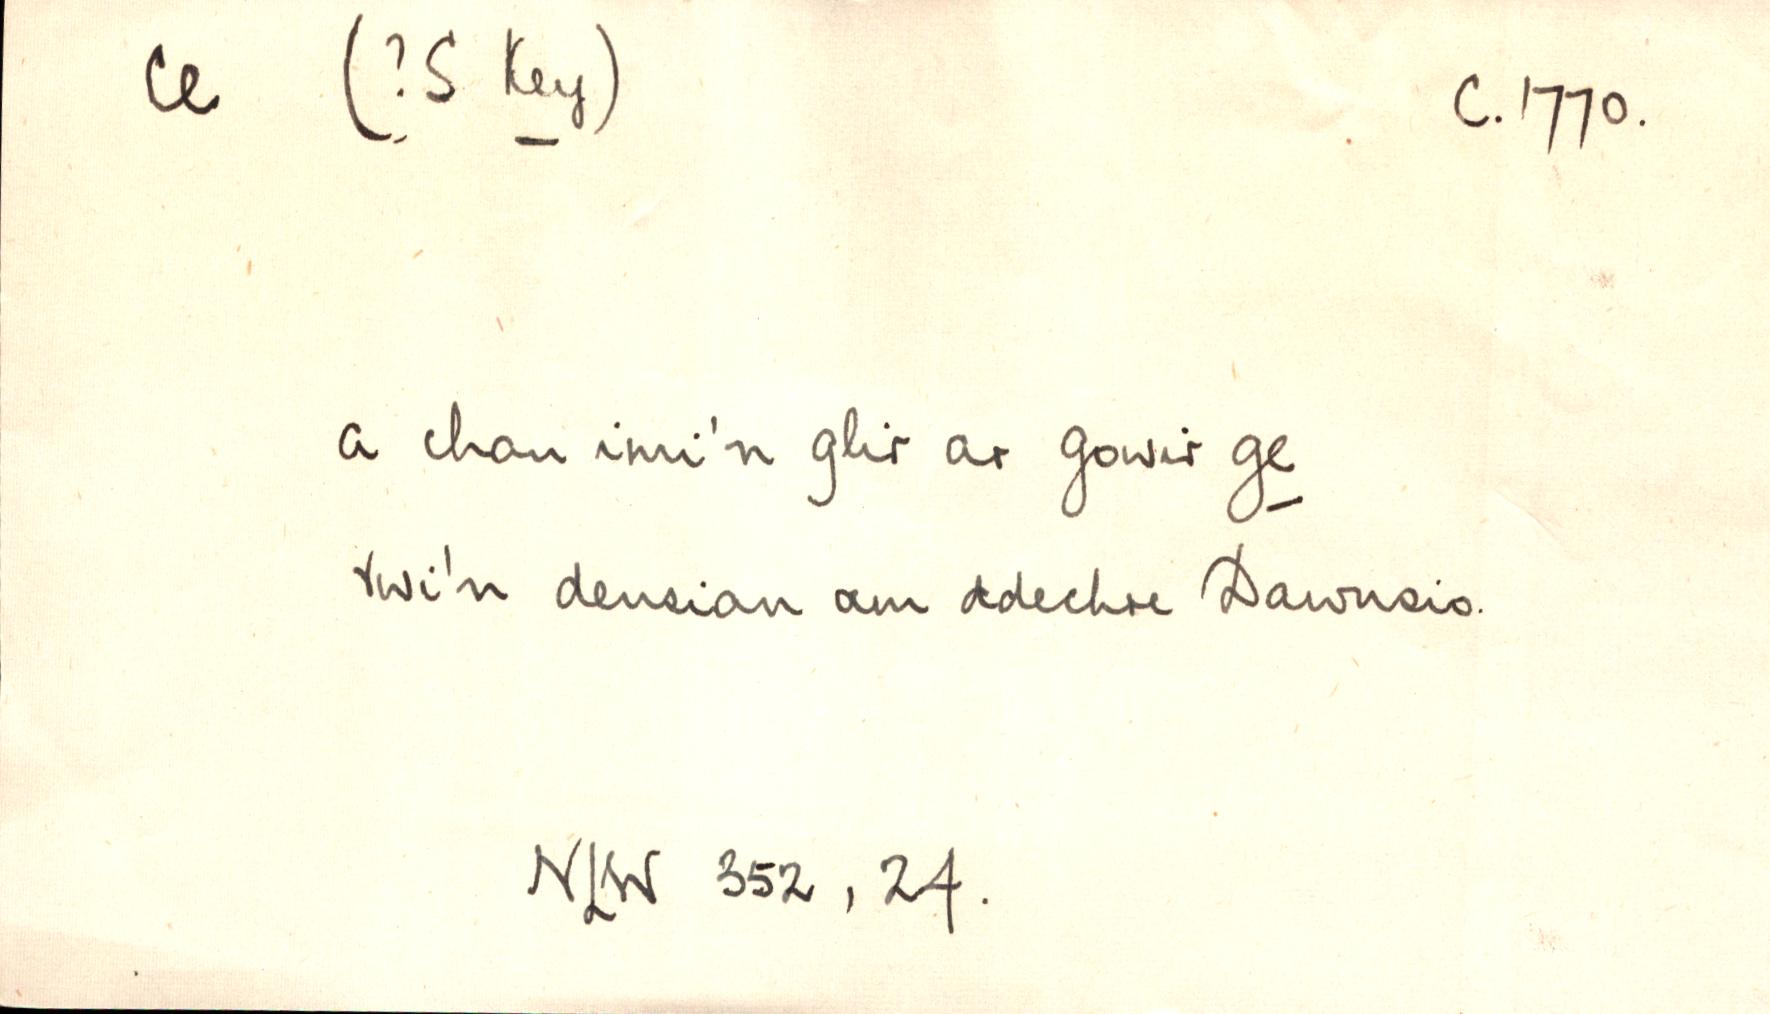 ce (?S Key) C. 1770.
a chan imi'n glir ar gowir ge
rwi'n densian am ddechre Dawnsio.
NLW 352, 24.